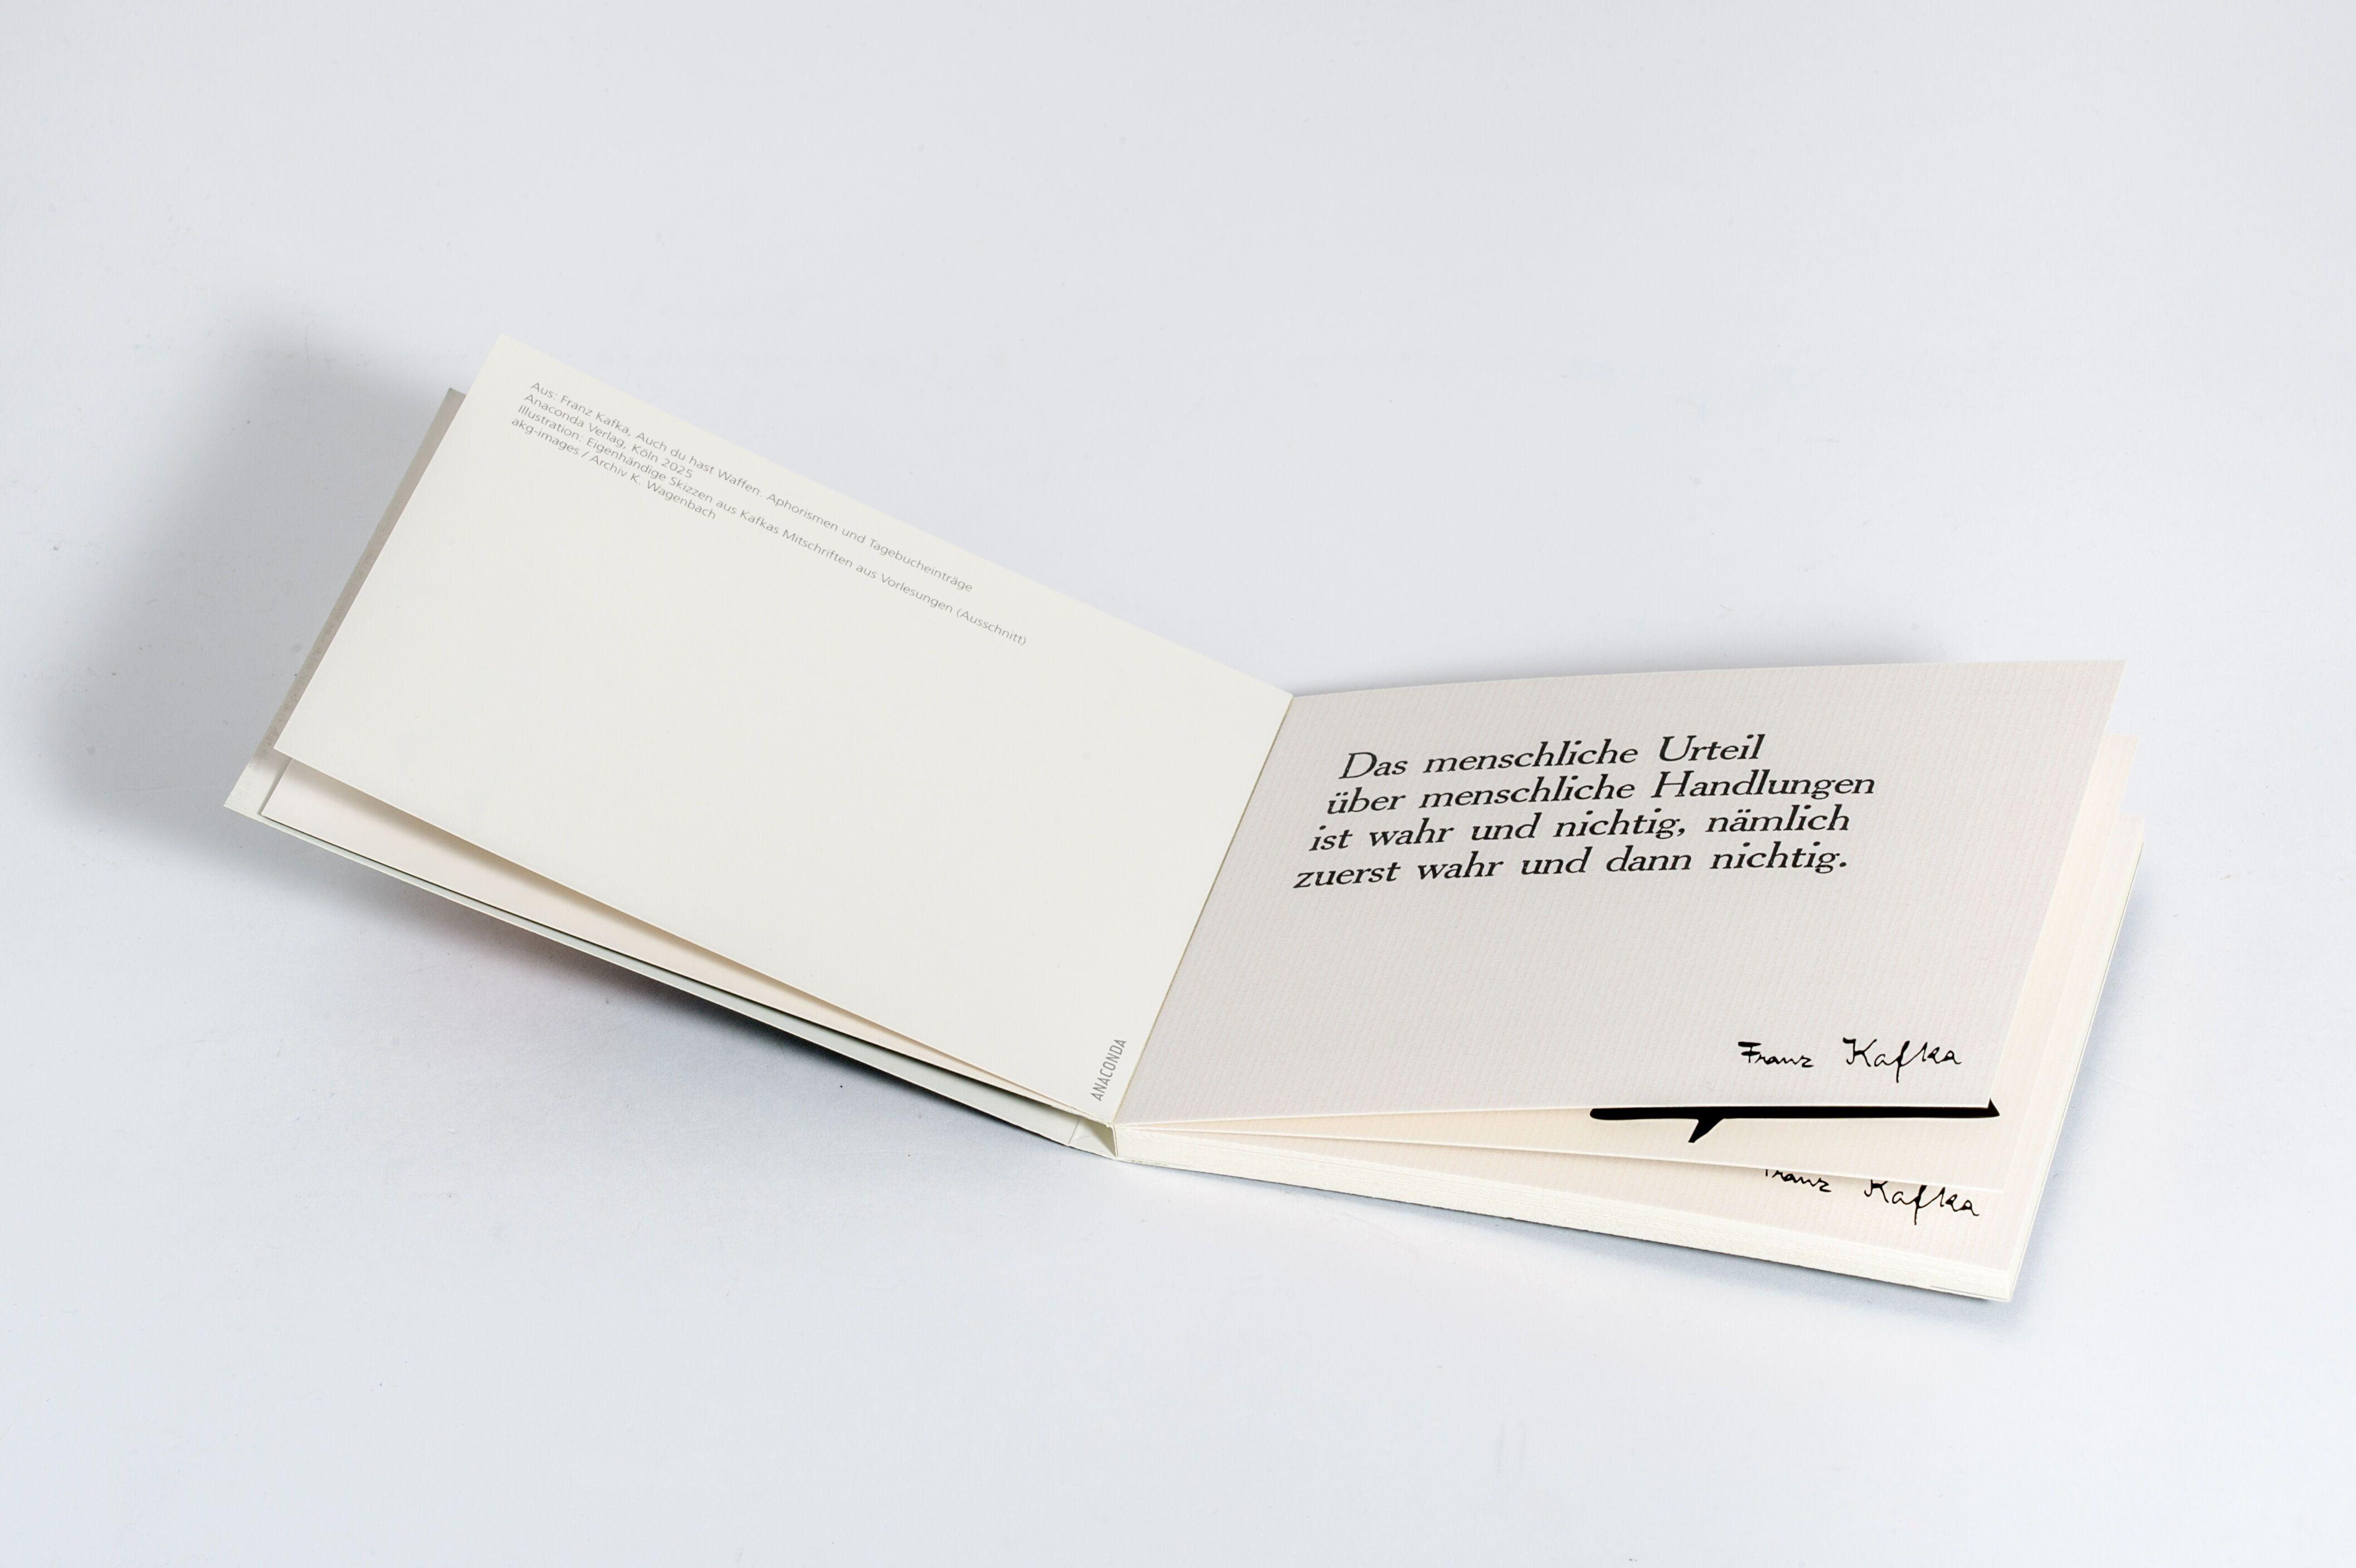 Aus: Franz Kafka, Auch du hast Waffen. Aphorismen und Tagebucheinträge
Anaconda Verlag, Köln 2025
Illustration: Eigenhändige Skizzen aus Kafkas Mitschriften aus Vorlesungen (Ausschnitt)
akg-images / Archiv K. Wagenbach
ANACONDA
Das menschliche Urteil
über menschliche Handlungen
ist wahr und nichtig, nämlich
zuerst wahr und dann nichtig.
Franz Kafka
Franz Kafka